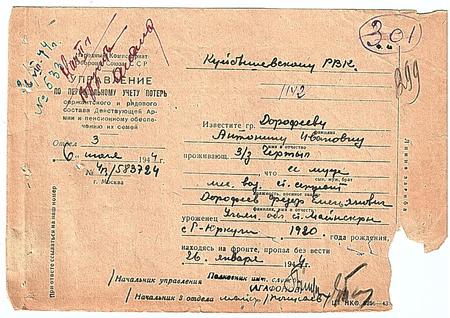 301
299
Народный Комиссариат
Обороны Союза ССР
УПРАВЛЕНИЕ
ПО ПЕРСОНАЛЬНОМУ УЧЕТУ ПОТЕРЬ
сержантского и рядового
состава Действующей Ар-
мии и пенсионному обеспе-
чению их семей
Отдел 3
6 июля 194
№ 4/583724
г. Москва
При ответе ссылаться на наш № и число
Куйбышевскому РВК.
1142
Известите гр. Дорофееву
фамилия
Антонину Ивановну
имя и отчество
проживающ.
что ее муж
сын, муж, брат
ст. сержант
должность, военное звание
Дорофеев Федор Емельянович
фамилия, имя и отчество
уроженец Ульян. обл. ст. Майнский
с Г-Юркули 1920 года рождения,
находясь на фронте, пропал без вести
26. января 194
Начальник управления Полковник инт. службы
(АГАФОНОВ)
Начальник 3 отдела майор
Линия загиба